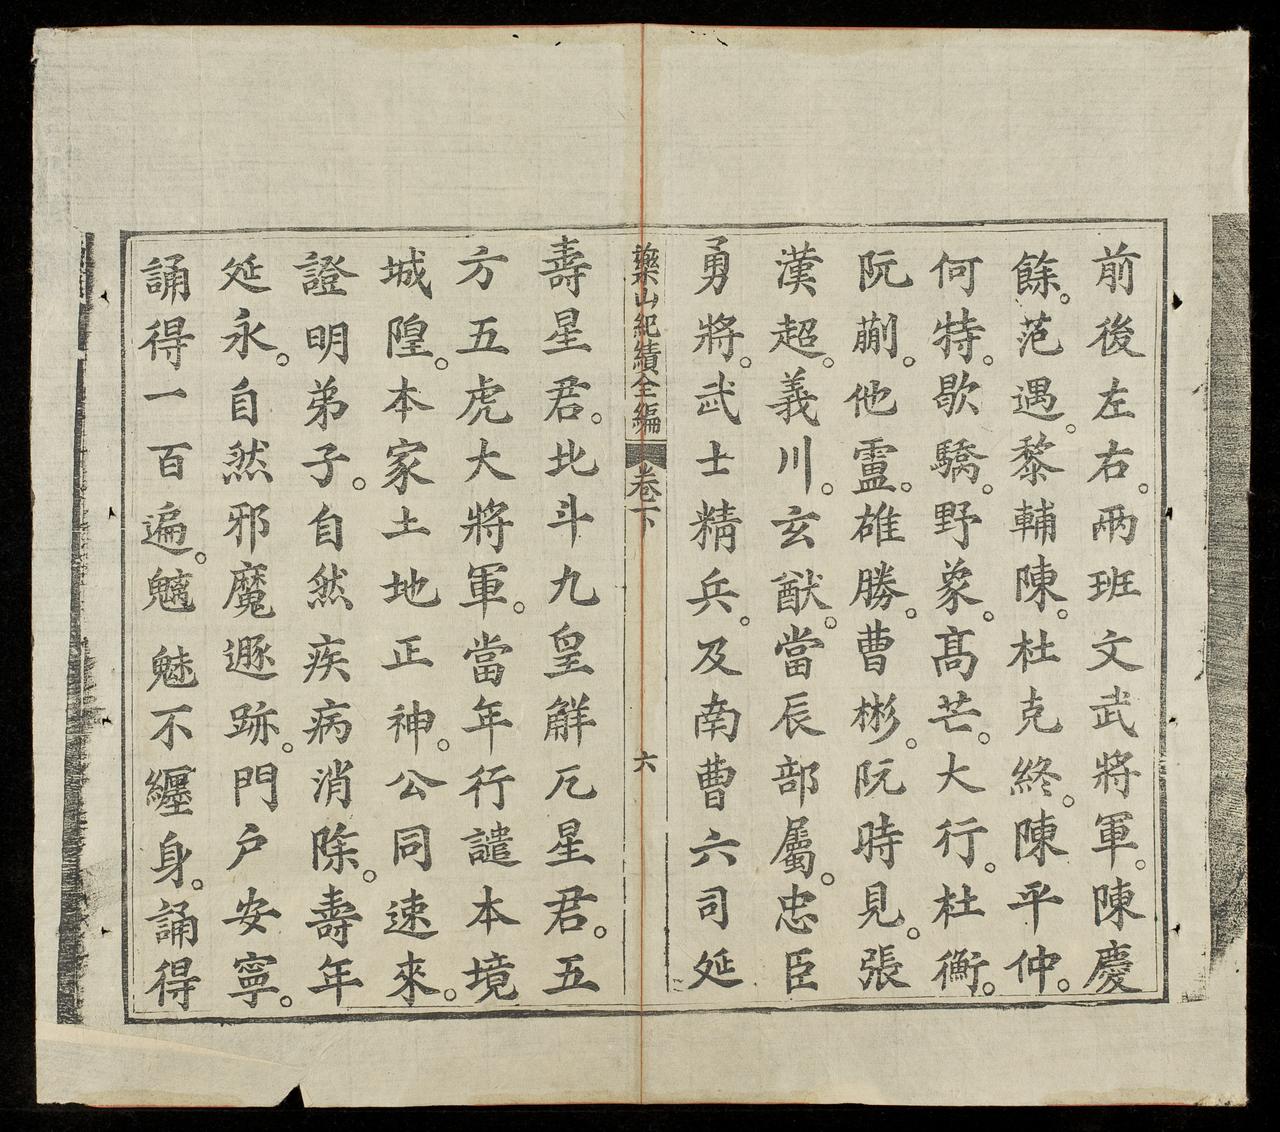 前後左右。兩班文武將軍。陳慶
餘。范遇。黎輔陳。杜克終。陳平仲。
何特。歇驕。野象。高芒。大行。杜衡。
阮蒯。他盧。雄勝。曹彬。阮時見。張
漢超。義川。玄猷。當辰部屬。忠臣
勇將。武士精兵。及南曹六司延
藥山紀績全編 卷下 六
壽星君。北斗九皇觧厄星君。五
方五虎大將軍。當年行譴本境
城隍。本家土地正神。公同速來。
證明弟子。自然疾病消除。壽年
延永。自然邪魔遯跡。門戶安寧。
誦得一百遍。魑魅不纏身。誦得